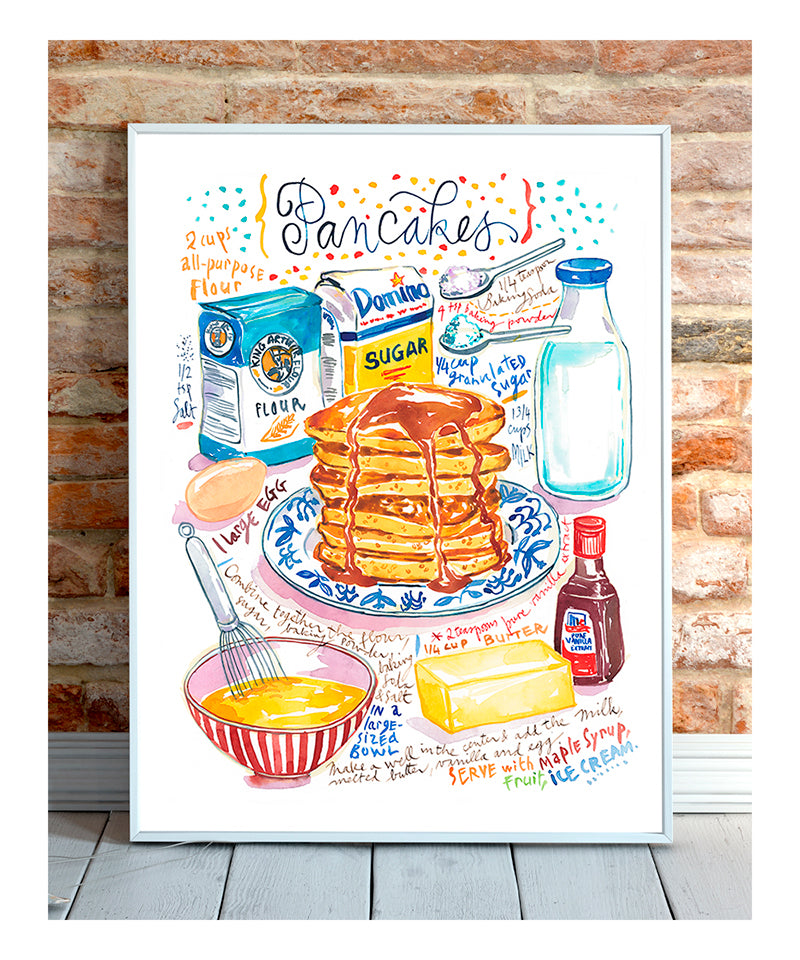 Pancakes
2 cups
all-purpose
Flour
Domino
SUGAR
1/4 teaspoon
Baking Soda
4 tsp baking
powder
KING ARTHUR FLOUR
FLOUR
1/2
tsp
Salt
1/4 cup
granulated
Sugar
1 3/4
cups
Milk
1 large EGG
Combine together the flour,
sugar, baking powder,
baking
soda
& salt
IN a
large-
sized
BOWL
* 2 teaspoons pure vanilla extract
1/4 CUP BUTTER
PURE
VANILLA
EXTRACT
Make a well in the center & add the milk,
melted butter, vanilla and egg.
SERVE with Maple Syrup,
Fruit, ICE CREAM.